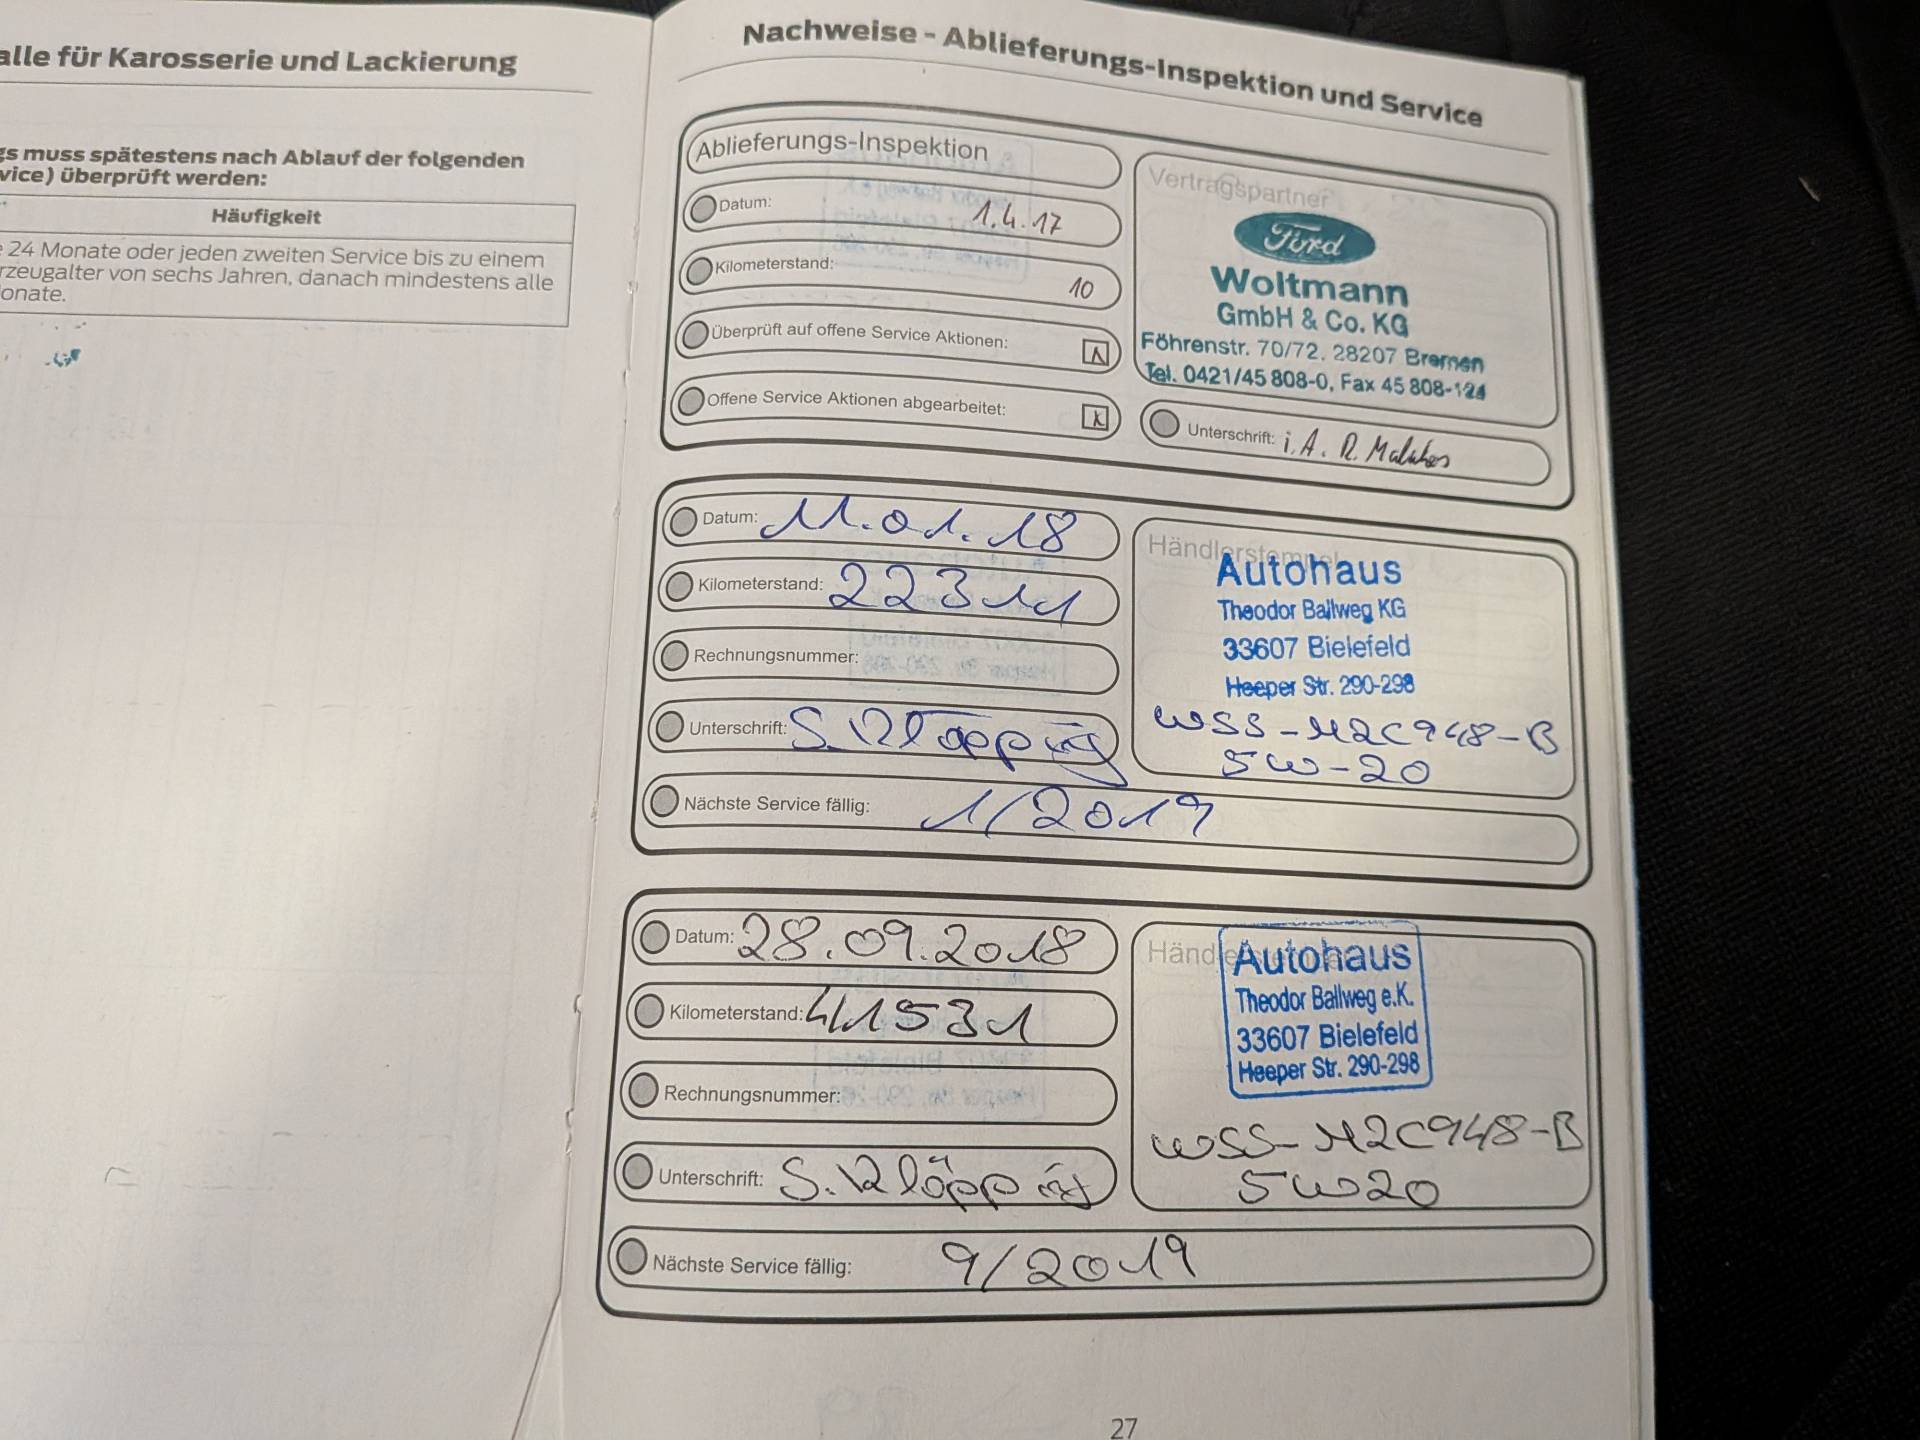 alle für Karosserie und Lackierung
gs muss spätestens nach Ablauf der folgenden
vice) überprüft werden:
Häufigkeit
e 24 Monate oder jeden zweiten Service bis zu einem
rzeugalter von sechs Jahren, danach mindestens alle
onate.
Nachweise - Ablieferungs-Inspektion und Service
Ablieferungs-Inspektion
Datum: 1.4.17
Kilometerstand: 10
Überprüft auf offene Service Aktionen:
Offene Service Aktionen abgearbeitet:
Vertragspartner
Ford
Woltmann
GmbH & Co. KG
Föhrenstr. 70/72, 28207 Bremen
Tel. 0421/45 808-0, Fax 45 808-124
Unterschrift: i.A. R.
Datum: 11.01.18
Kilometerstand: 22311
Rechnungsnummer:
Unterschrift: S. Klöpping
Händlerstempel
Autohaus
Theodor Ballweg KG
33607 Bielefeld
Heeper Str. 290-298
WSS-M2C948-B
5W-20
Nächste Service fällig: 1/2019
Datum: 28.09.2018
Kilometerstand: 41531
Rechnungsnummer:
Unterschrift: S. Klöpping
Händlerstempel
Autohaus
Theodor Ballweg e.K.
33607 Bielefeld
Heeper Str. 290-298
WSS-M2C948-B
5W20
Nächste Service fällig: 9/2019
27